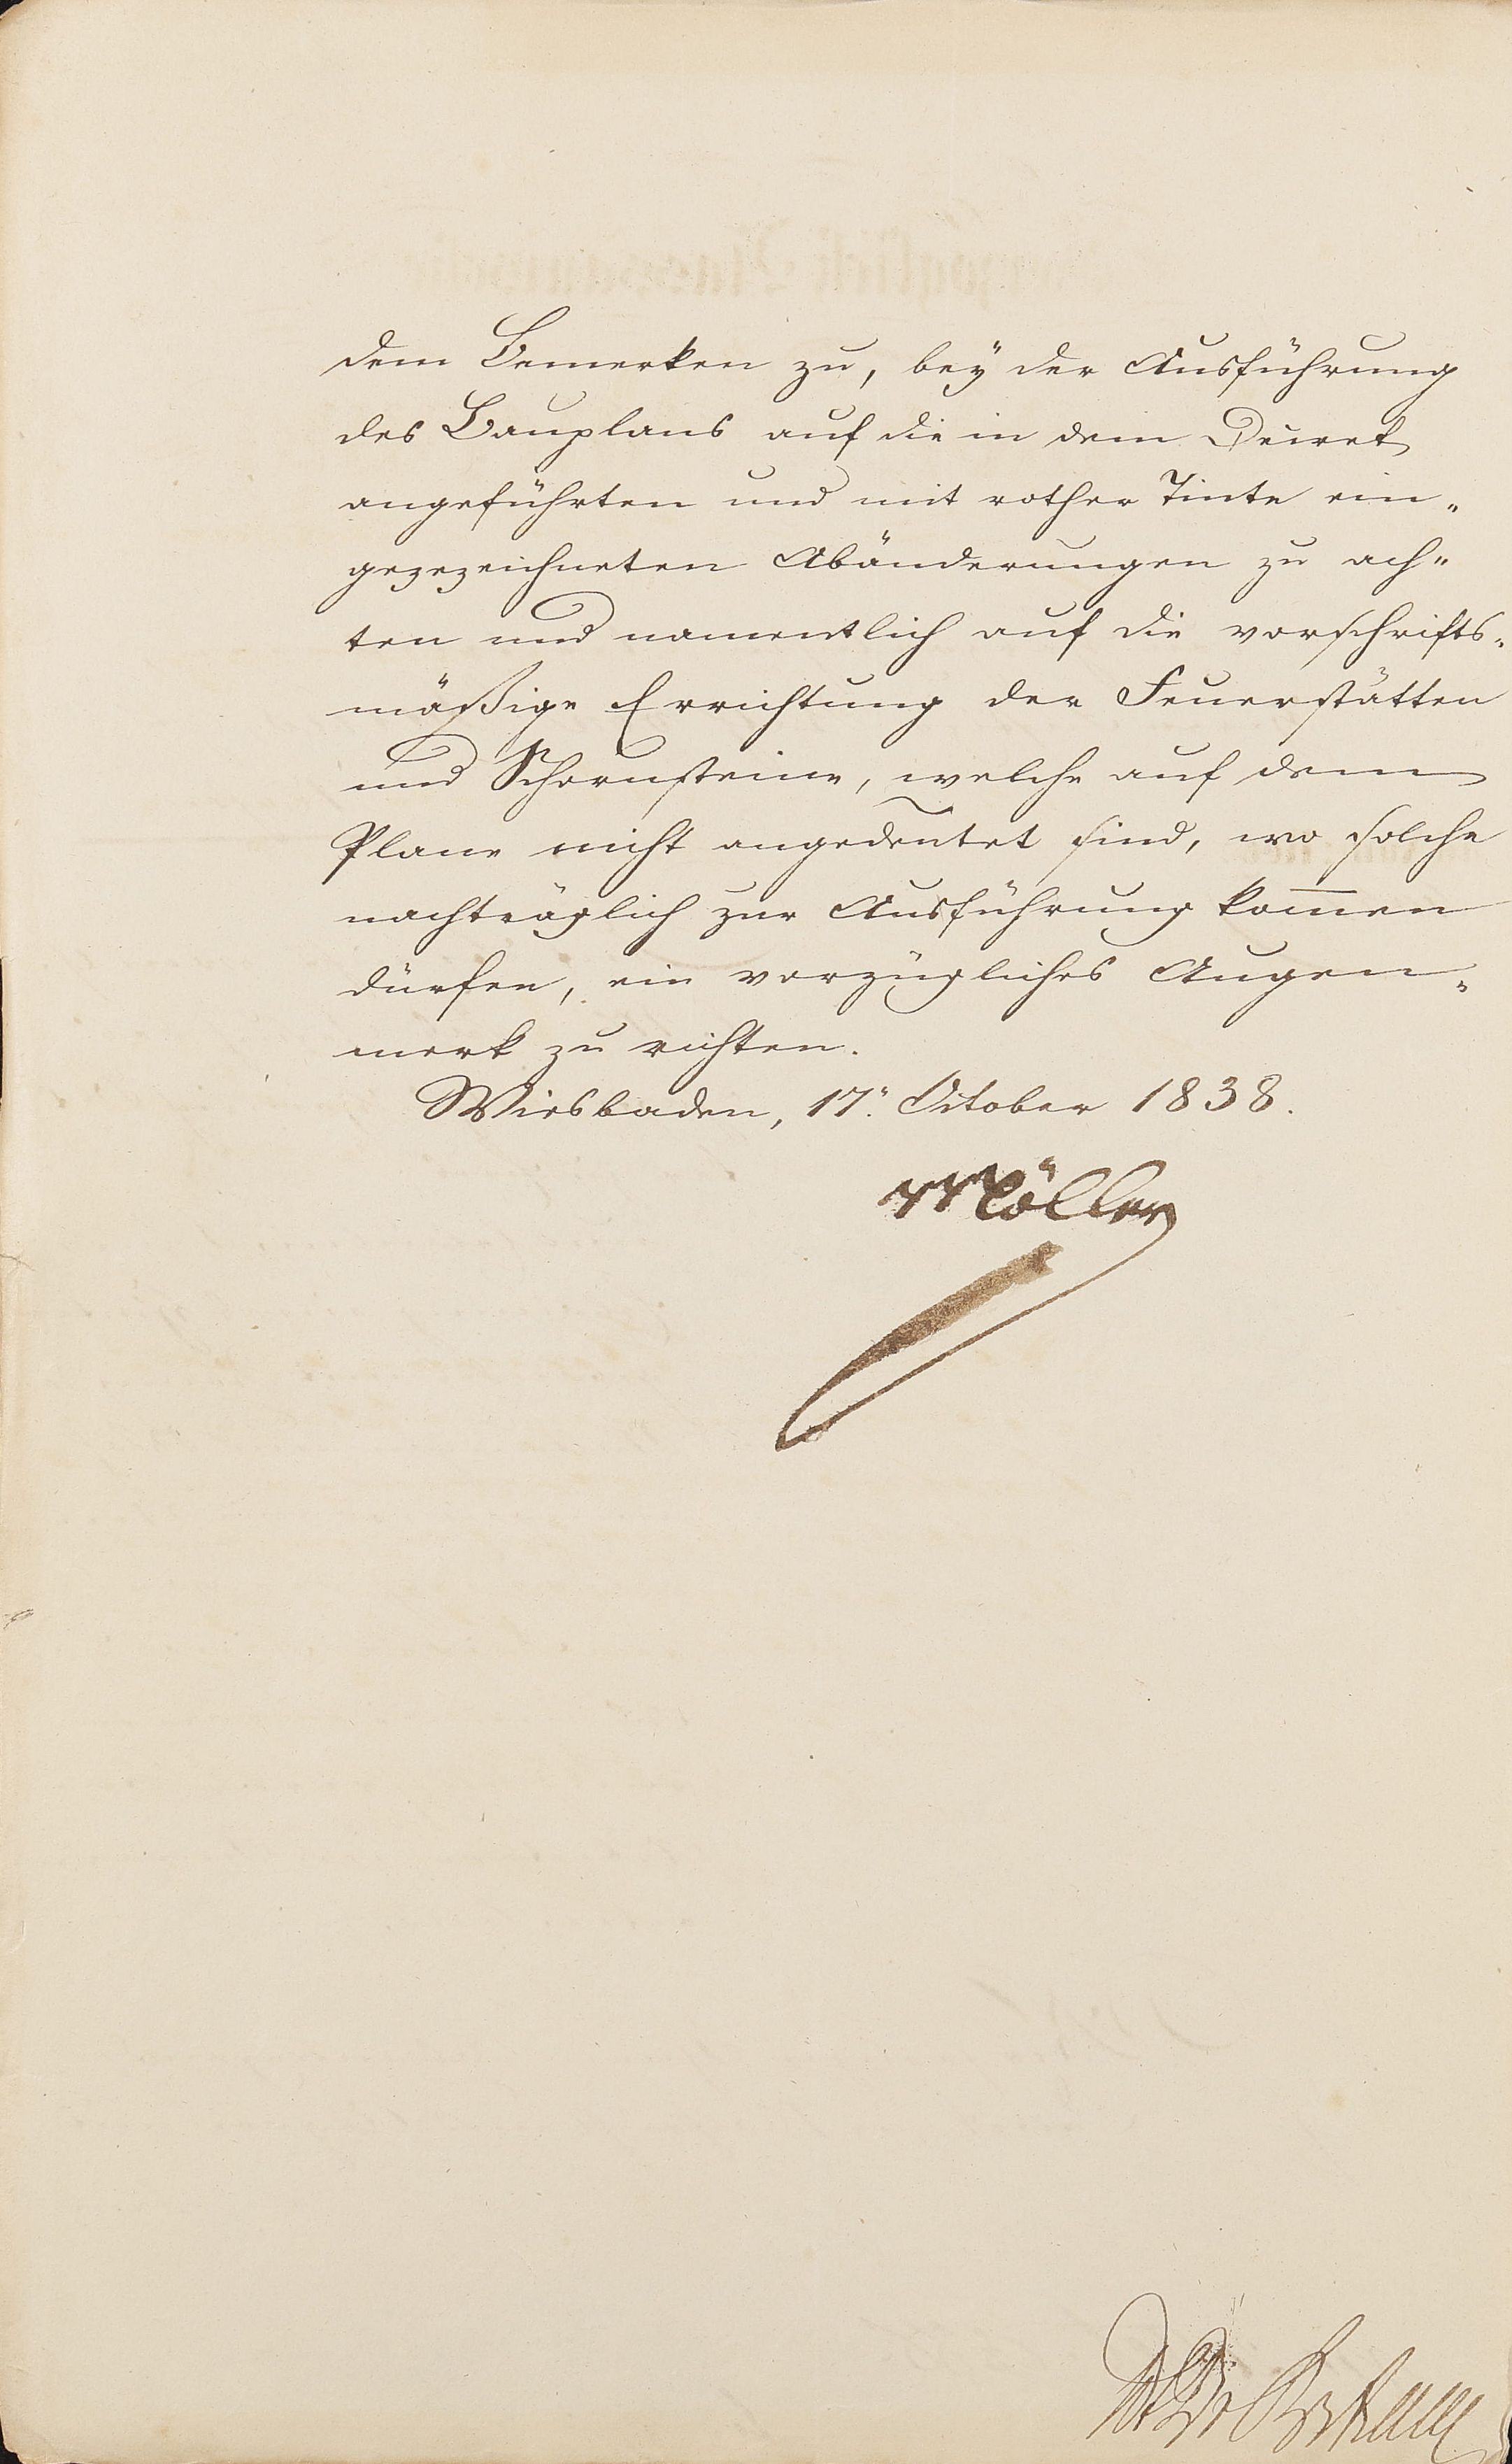 dem Bemerken zu, bey der Ausführung
des Bauplans auf die in dem Decret
angeführten und mit rother Tinte ein„
gezezeichneten Abänderungen zu ach„
ten und namentlich auf die vorschrifts„
mäßige Errichtung der Feuerstätten
und Schornsteine, welche auf dem
Plane nicht angedeutet sind, wo solche
nachträglich zur Ausführung kom̅en
dürfen, ein vorzügliches Augen„
merk zu richten.
Wiesbaden, 17. October 1838.
Möller